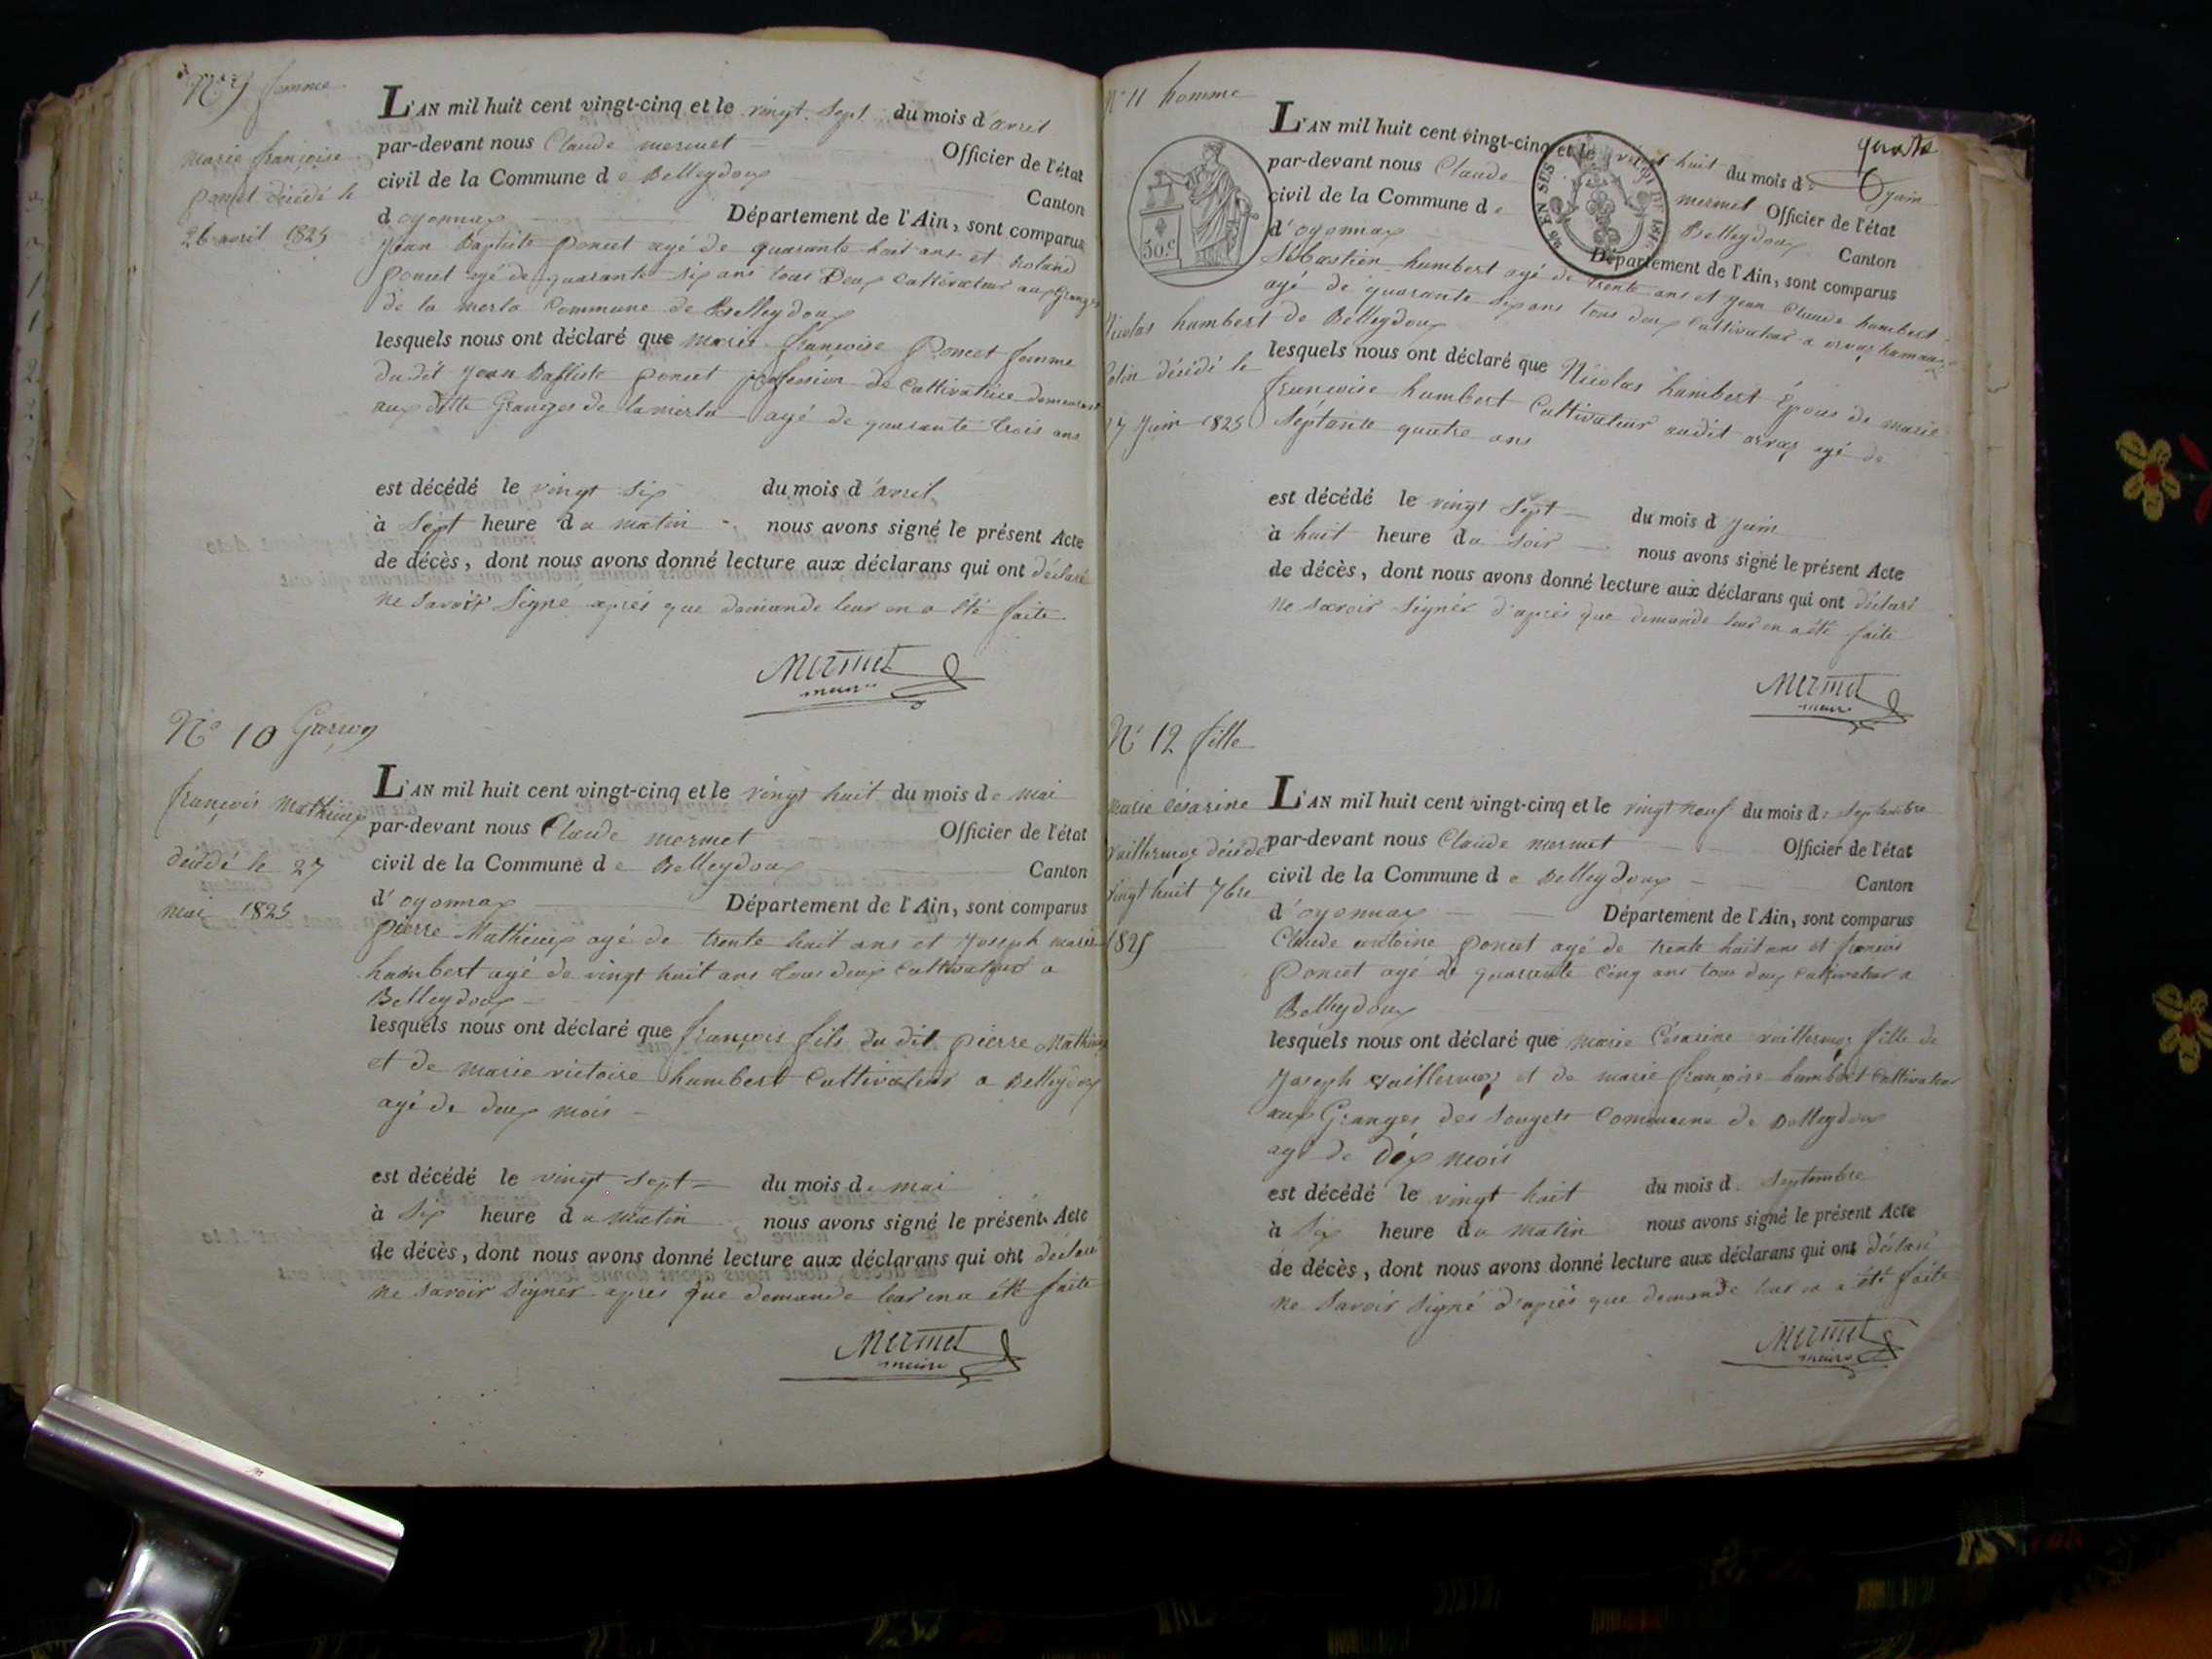 N° 9 femme
marie françoise
poncet décédé le
26 avril 1825
L'AN mil huit cent vingt-cinq et le vingt Sept du mois d avril
par-devant nous Claude mermet Officier de l'état
civil de la Commune d e Belleydoux Canton
d oyonnax Département de l'Ain, sont comparus
jean Baptiste poncet agé de quarante huit ans et Roland
poncet agé de quarante six ans tous Deux Cultivateur aux Granges
de la merla Commune de Belleydoux
lesquels nous ont déclaré que marie françoise Poncet femme
du dit jean Baptiste poncet profession de Cultivatrice demeurant
aux ditte Granges de la merla agé de quarante trois ans
est décédé le vingt six du mois d'avril
à Sept heure du matin nous avons signé le présent Acte
de décès, dont nous avons donné lecture aux déclarans qui ont déclaré
ne Savoir Signé après que demande leur en a été faite
Mermet
maire
N° 10 Garçon
françois Mathieux
décédé le 27
mai 1825
L'AN mil huit cent vingt-cinq et le vingt huit du mois de mai
par-devant nous Claude mermet Officier de l'état
civil de la Commune d e Belleydoux Canton
d'oyonnax Département de l'Ain, sont comparus
pierre Mathieux agé de trente huit ans et joseph marie
humbert agé de vingt huit ans tous deux Cultivateurs a
Belleydoux
lesquels nous ont déclaré que françois fils du dit pierre Mathieux
et de marie victoire humbert Cultivateurs a Belleydoux
agé de deux mois
est décédé le vingt Sept du mois de mai
à Six heure du matin nous avons signé le présent Acte
de décès, dont nous avons donné lecture aux déclarans qui ont déclaré
ne Savoir Signer après que demande leur en a été faite
Mermet
maire
N° 11 homme
Nicolas humbert
décédé le
27 Juin 1825
50.c
EN SUS
DE 1816
L'AN mil huit cent vingt-cinq et le vingt huit du mois de juin
par-devant nous Claude mermet Officier de l'état
civil de la Commune d e Belleydoux Canton
d'oyonnax Département de l'Ain, sont comparus
Sébastien humbert agé de trente ans et jean Claude humbert
agé de quarante six ans tous deux Cultivateur a orvaz hameau
de Belleydoux
lesquels nous ont déclaré que Nicolas humbert Époux de marie
françoise humbert Cultivateur audit orvaz agé de
Séptante quatre ans
est décédé le vingt Sept du mois d juin
à huit heure du Soir nous avons signé le présent Acte
de décès, dont nous avons donné lecture aux déclarans qui ont déclaré
ne Savoir Signér d'après que demande leur en a été faite
Mermet
maire
N° 12 fille
marie Césarine
vuillermoz décédé
vingt huit 7bre
1825
L'AN mil huit cent vingt-cinq et le vingt neuf du mois de Septembre
par-devant nous Claude mermet Officier de l'état
civil de la Commune d e Belleydoux Canton
d'oyonnax Département de l'Ain, sont comparus
Claude antoine poncet agé de trente huit ans et francois
Poncet agé de quarante cinq ans tous deux cultivateur a
Belleydoux
lesquels nous ont déclaré que marie Césarine vuillermoz fille de
Joseph vuillermoz et de marie françoise humbert Cultivateur
aux Granges des Commune de Belleydoux
agé de dix mois
est décédé le vingt huit du mois d Septembre
à Six heure du matin nous avons signé le présent Acte
de décès, dont nous avons donné lecture aux déclarans qui ont déclaré
ne Savoir Signé d'après que demande leur en a été faite
Mermet
maire